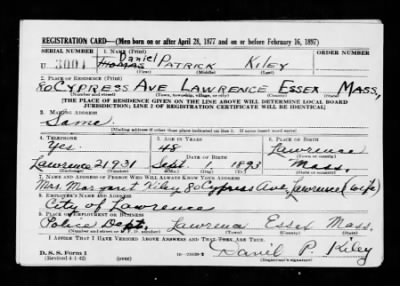 REGISTRATION CARD—(Men born on or after April 28, 1877 and on or before February 16, 1897)
SERIAL NUMBER 1. NAME (Print) ORDER NUMBER
U 3001 THOMAS Daniel PATRICK KILEY
(First) (Middle) (Last)
2. PLACE OF RESIDENCE (Print)
80 CYPRESS AVE LAWRENCE ESSEX MASS,
(Number and street) (Town, township, village, or city) (County) (State)
[THE PLACE OF RESIDENCE GIVEN ON THE LINE ABOVE WILL DETERMINE LOCAL BOARD
JURISDICTION; LINE 2 OF REGISTRATION CERTIFICATE WILL BE IDENTICAL]
3. MAILING ADDRESS
Same.
[Mailing address if other than place indicated on line 2. If same insert word same]
4. TELEPHONE 5. AGE IN YEARS 6. PLACE OF BIRTH
Yes. 48 Lawrence
DATE OF BIRTH (Town or county)
Lawrence 21931 Sept 1893 Mass.
7. NAME AND ADDRESS OF PERSON WHO WILL ALWAYS KNOW YOUR ADDRESS
Mrs. Margaret Kiley 80 Cypress Ave. Lawrence (wife)
8. EMPLOYER'S NAME AND ADDRESS
City of Lawrence
9. PLACE OF EMPLOYMENT OR BUSINESS
Police Dept. Lawrence Essex Mass.
(Number and street or R. F. D. number) (Town) (County) (State)
I AFFIRM THAT I HAVE VERIFIED ABOVE ANSWERS AND THAT THEY ARE TRUE.
D. S. S. Form 1 Daniel P. Kiley
(Revised 4-1-42) (Registrant's signature)